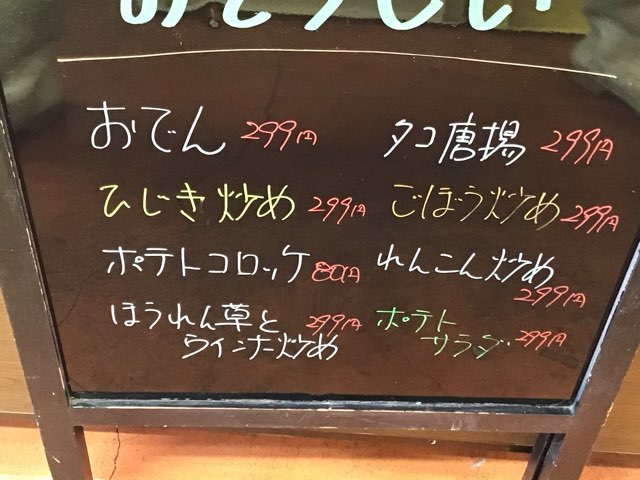 おでん 299円
タコ唐揚 299円
ひじき炒め 299円
ごぼう炒め 299円
ポテトコロッケ 80円
れんこん炒め
299円
ほうれん草と 299円
ウインナー炒め
ポテト
サラダ 299円